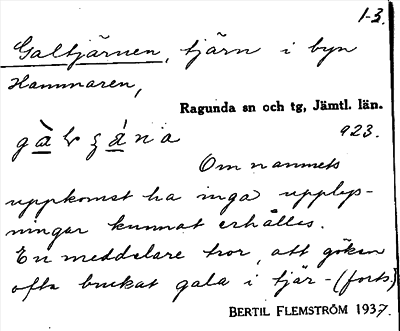 1-3.
Galtjärnen, tjärn i byn
Hammaren,
Ragunda sn och tg, Jämtl. län.
923.
Om namnets
uppkomst ha inga upplys-
ningar kunnat erhålles.
En meddelare tror, att göken
ofta brukat gala i tjär-(forts.)
BERTIL FLEMSTRÖM 1937.